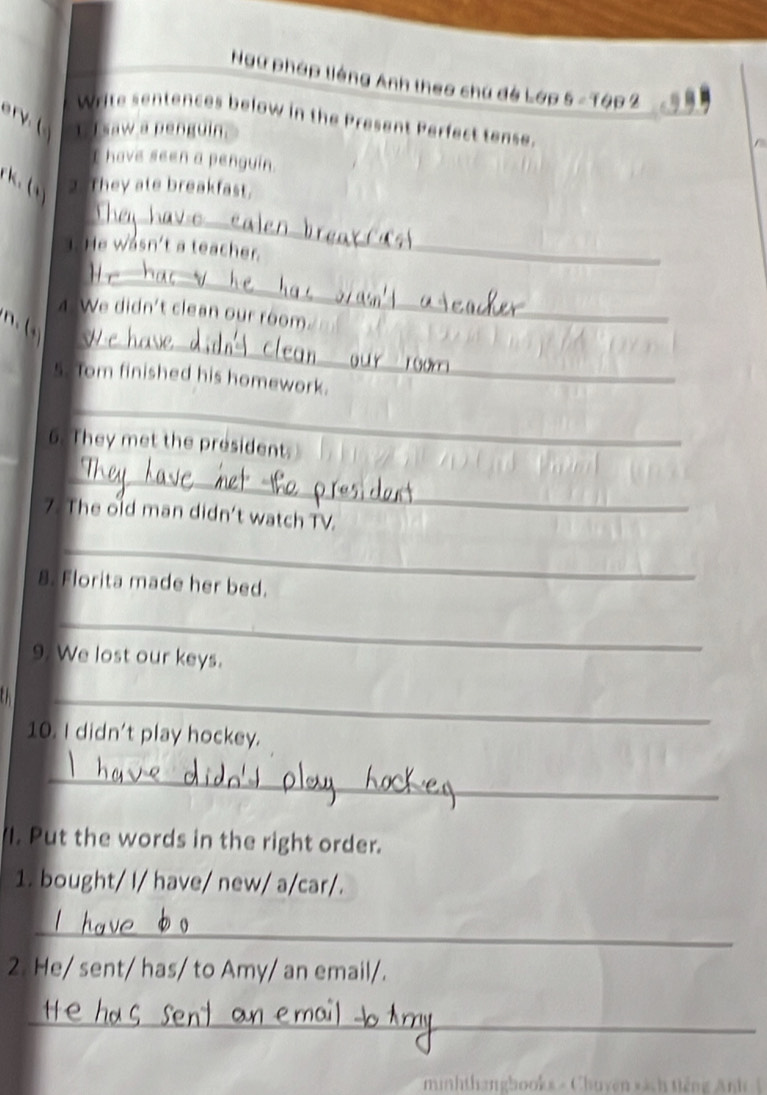 Ngữ pháp tiếng Anh theo chủ đề Lớp 5 - Tập 2
Write sentences below in the Present Perfect tense.
ery. (
1. I saw a penguin.
I have seen a penguin.
rk. (
2. They ate breakfast.
They have eaten breakfast
3. He wasn't a teacher.
he has wasn't a teacher
4. We didn't clean our room.
n. (
We have didn't clean our room
5. Tom finished his homework.
6. They met the president.
They have met the president
7. The old man didn't watch TV.
8. Florita made her bed.
9. We lost our keys.
th
10. I didn't play hockey.
I have didn't play hockey
II. Put the words in the right order.
1. bought/ I/ have/ new/ a/car/.
I have bo
2. He/ sent/ has/ to Amy/ an email/.
He has sent an email to Amy
minhthangbooks - Chuyên sách tiếng Anh